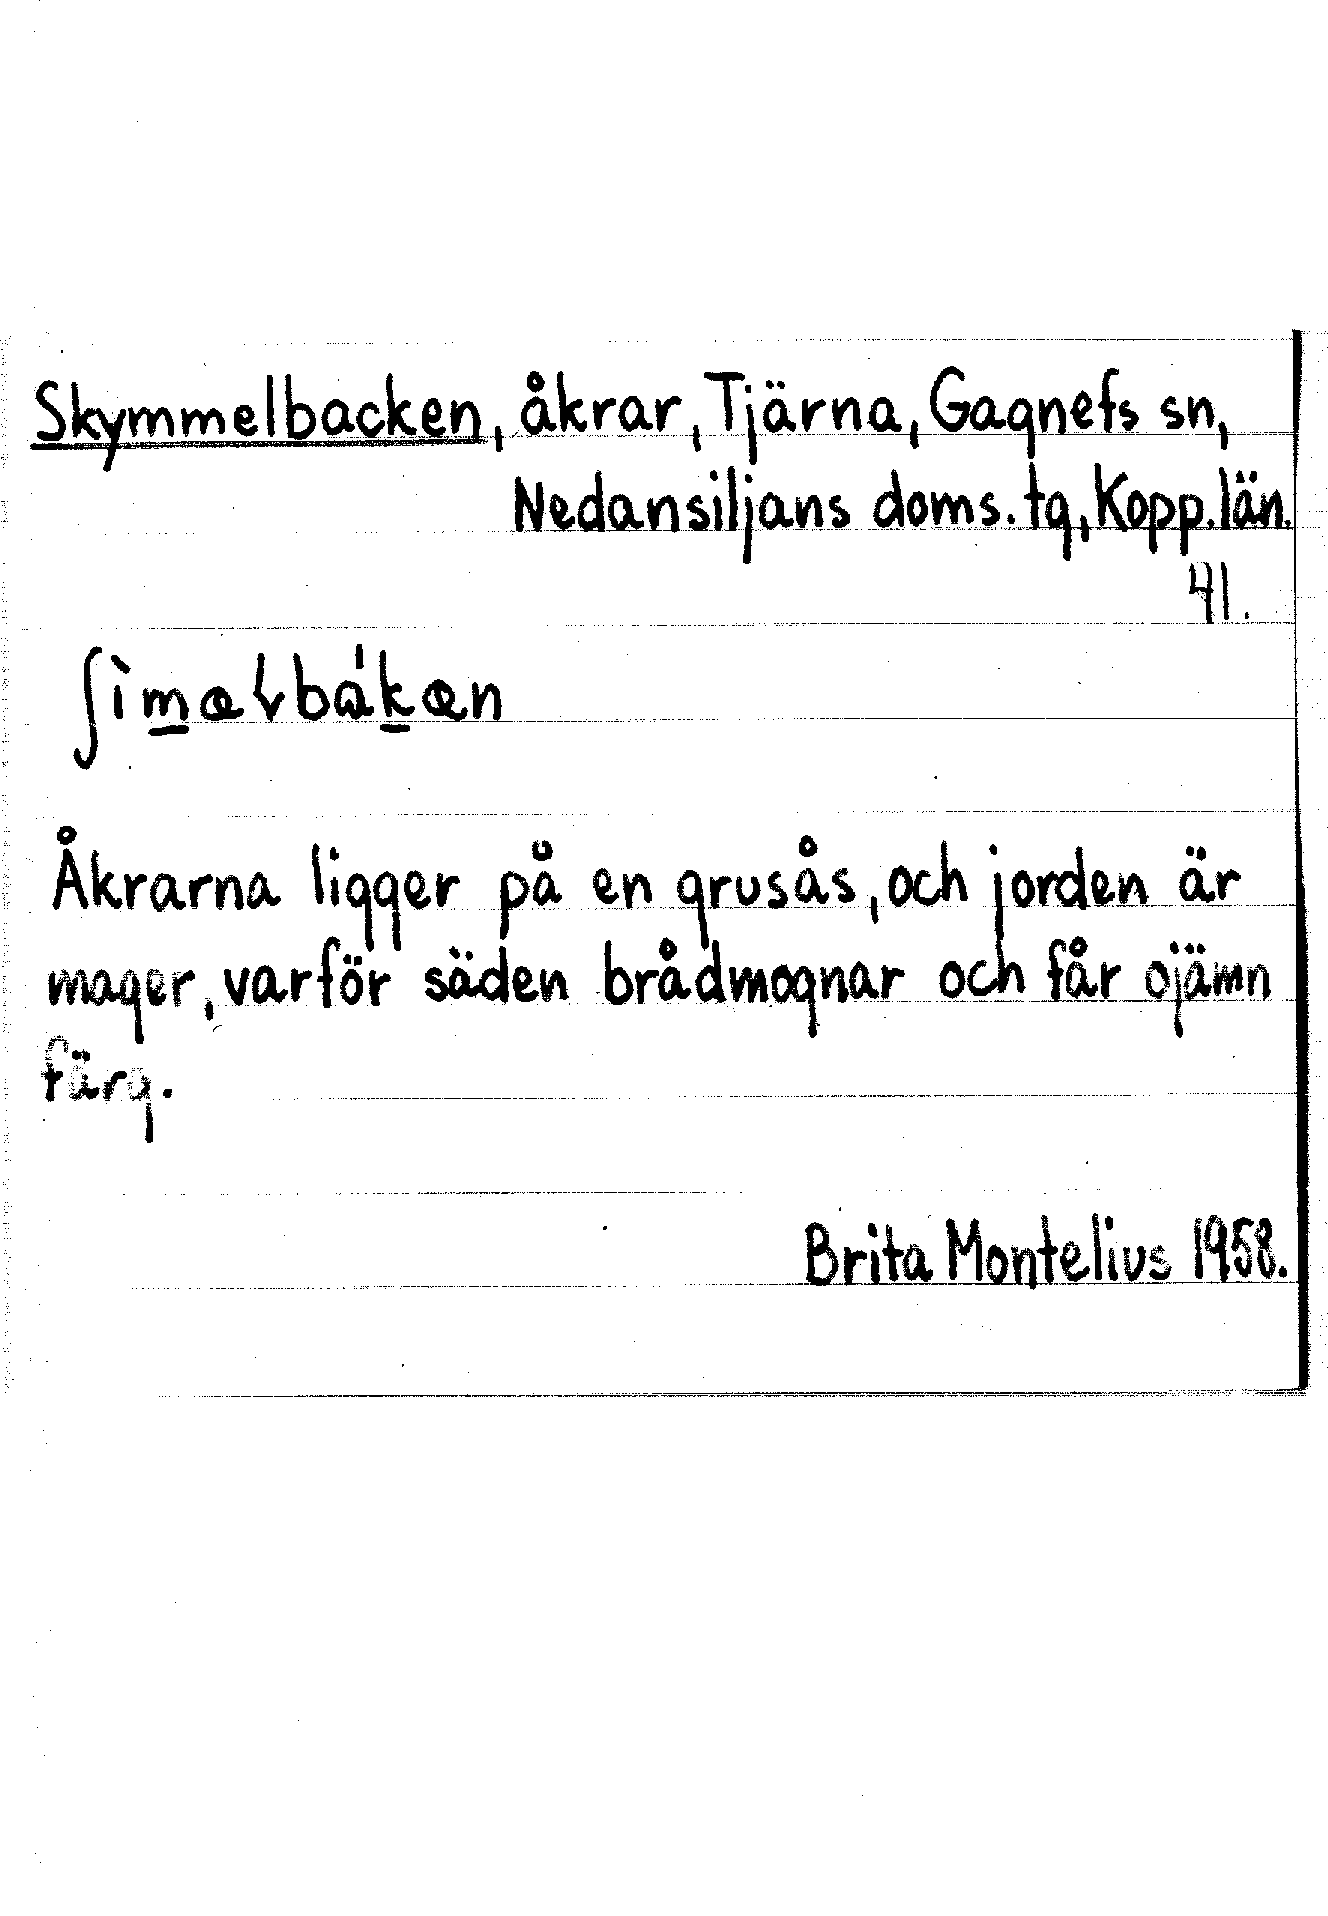 Skymmelbacken, åkrar, Tjärna, Gagnefs sn,
Nedansiljans doms. tg, Kopp. län.
41.
Åkrarna ligger på en grusås, och jorden är
mager, varför säden brådmognar och får ojämn
färg.
Brita Montelius 1958.